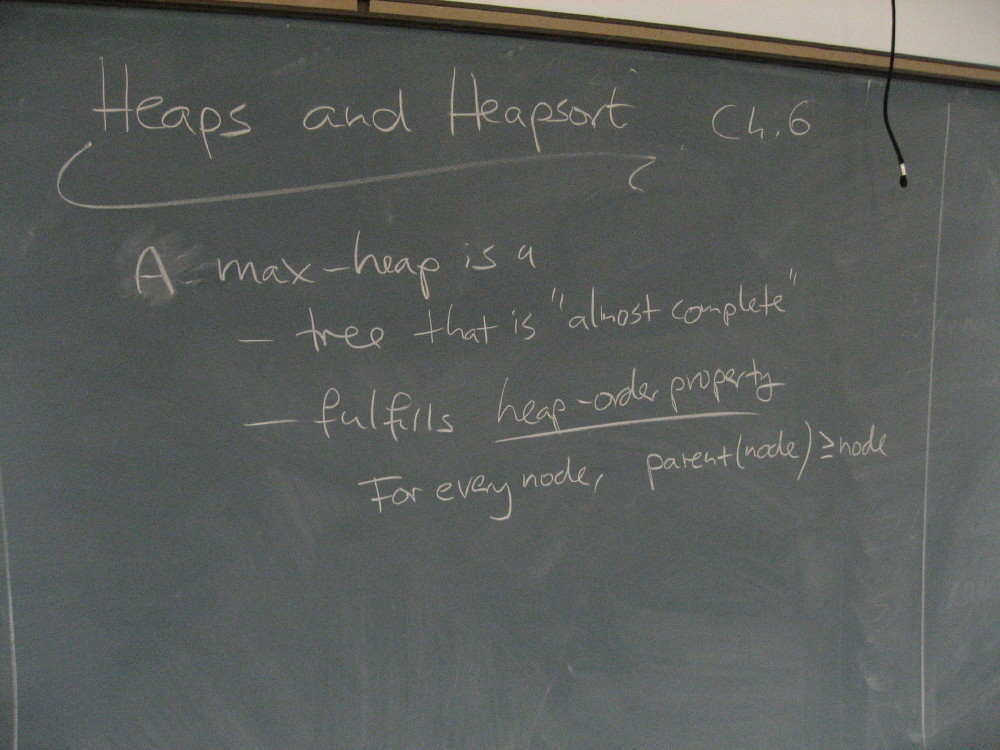 Heaps and Heapsort Ch.6
A max-heap is a
- tree that is "almost complete"
- fulfills heap-order property
For every node, parent(node) ≥ node